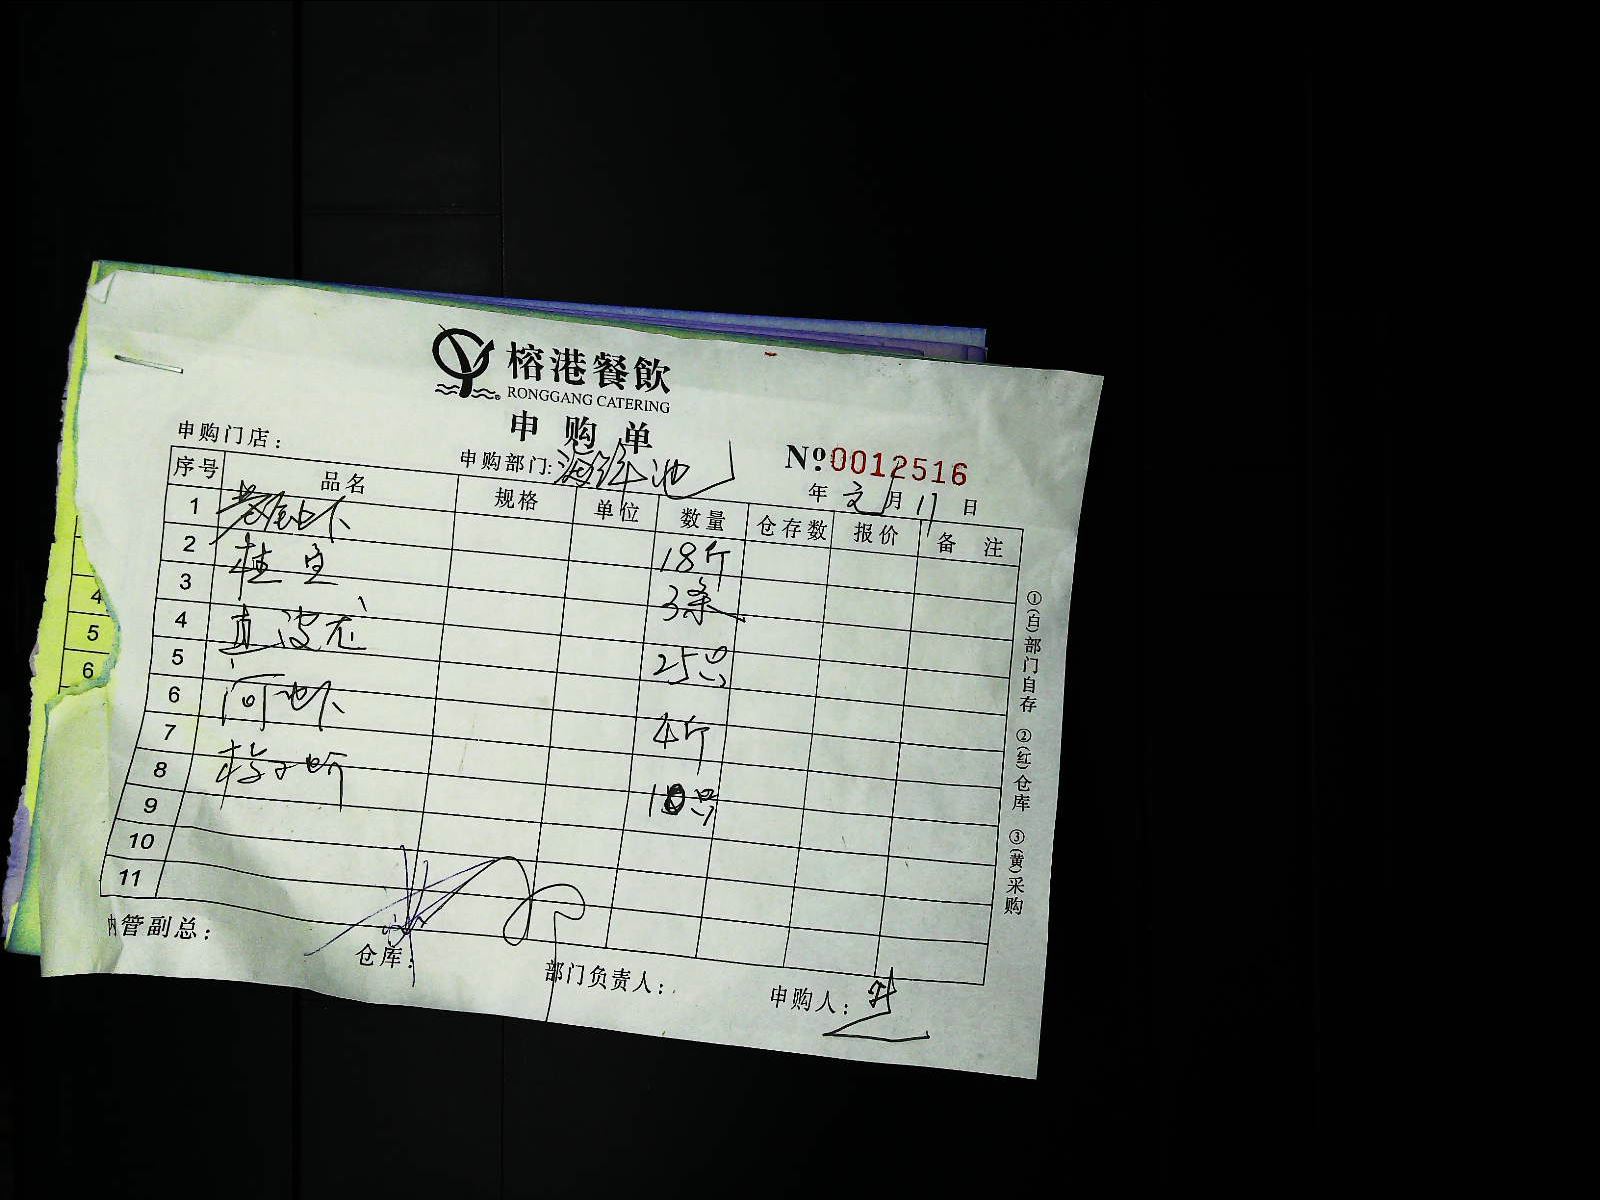 榕港餐飲
RONGGANG CATERING
申购单
申购门店：
申购部门: 海鲜池
№ 0012516
年 月 11 日
序号 品名 规格 单位 数量 仓存数 报价 备注
1
2 桂鱼 18斤
3 3条
4 直波龙
5 25只
6 河虾
7 4斤
8
9 10只
10
11
①(白)部门自存 ②(红)仓库 ③(黄)采购
内管副总：
仓库：
部门负责人：
申购人：
4
5
6